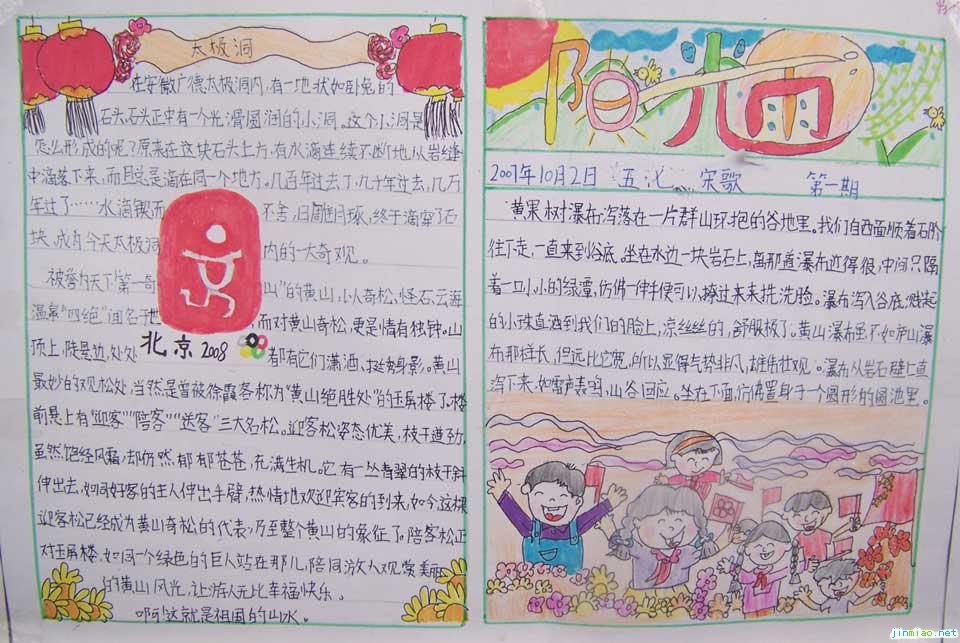 太极洞
在安徽广德太极洞内,有一地状如卧兔的
石头,石头正中有一个光滑圆润的小洞。这个小洞是
怎么形成的呢?原来在这块石头上方,有水滴连续不断地从岩缝
中滴落下来,而且总是滴在同一个地方。几百年过去了,几千年过去,几万
年过了……水滴锲而不舍,日雕月琢,终于滴穿了石
块,成为今天太极洞内的一大奇观。
被誉为天下第一奇山”的黄山,以奇松,怪石,云海
温泉“四绝”闻名于 而对黄山奇松,更是情有独钟。山
顶上,陡崖边,处处都有它们潇洒、挺秀身影。黄山
最妙的观松处,当然是曾被徐霞客称为“黄山绝胜处”的玉屏楼了。楼
前悬上有“迎客”“陪客”“送客”三大名松。迎客松姿态优美,枝干遒劲,
虽然饱经风霜,却仍然郁郁苍苍,充满生机。它有一丛青翠的枝干斜
伸出去,如同好客的主人伸出手臂,热情地欢迎宾客的到来,如今这棵
迎客松已经成为黄山奇松的代表,乃至整个黄山的象征了。陪客松正
对玉屏楼,如同一个绿色的巨人站在那儿,陪同游人观赏美丽
的黄山风光,让游人无比幸福快乐。
啊!这就是祖国的山水。
京
北京2008
阳光雨
2007年10月2日 五.七 宋歌 第一期
黄果树瀑布泻落在一片群山环抱的谷地里。我们自西面顺着石阶
往下走,一直来到谷底,坐在水边一块岩石上,离那道瀑布近得很,中间只隔
着一口小小的绿潭,仿佛一伸手便可以掬过来来洗洗脸。瀑布泻入谷底,溅起
的小珠直洒到我们的脸上,凉丝丝的,舒服极了。黄山瀑布虽不如庐山瀑
布那样长,但远比它宽,所以显得气势非凡,雄伟壮观。瀑布从岩石壁上直
泻下来,如雷声轰鸣,山谷回应。坐在下面,仿佛置身于一个圆形的圆池里。
jinmiao.net